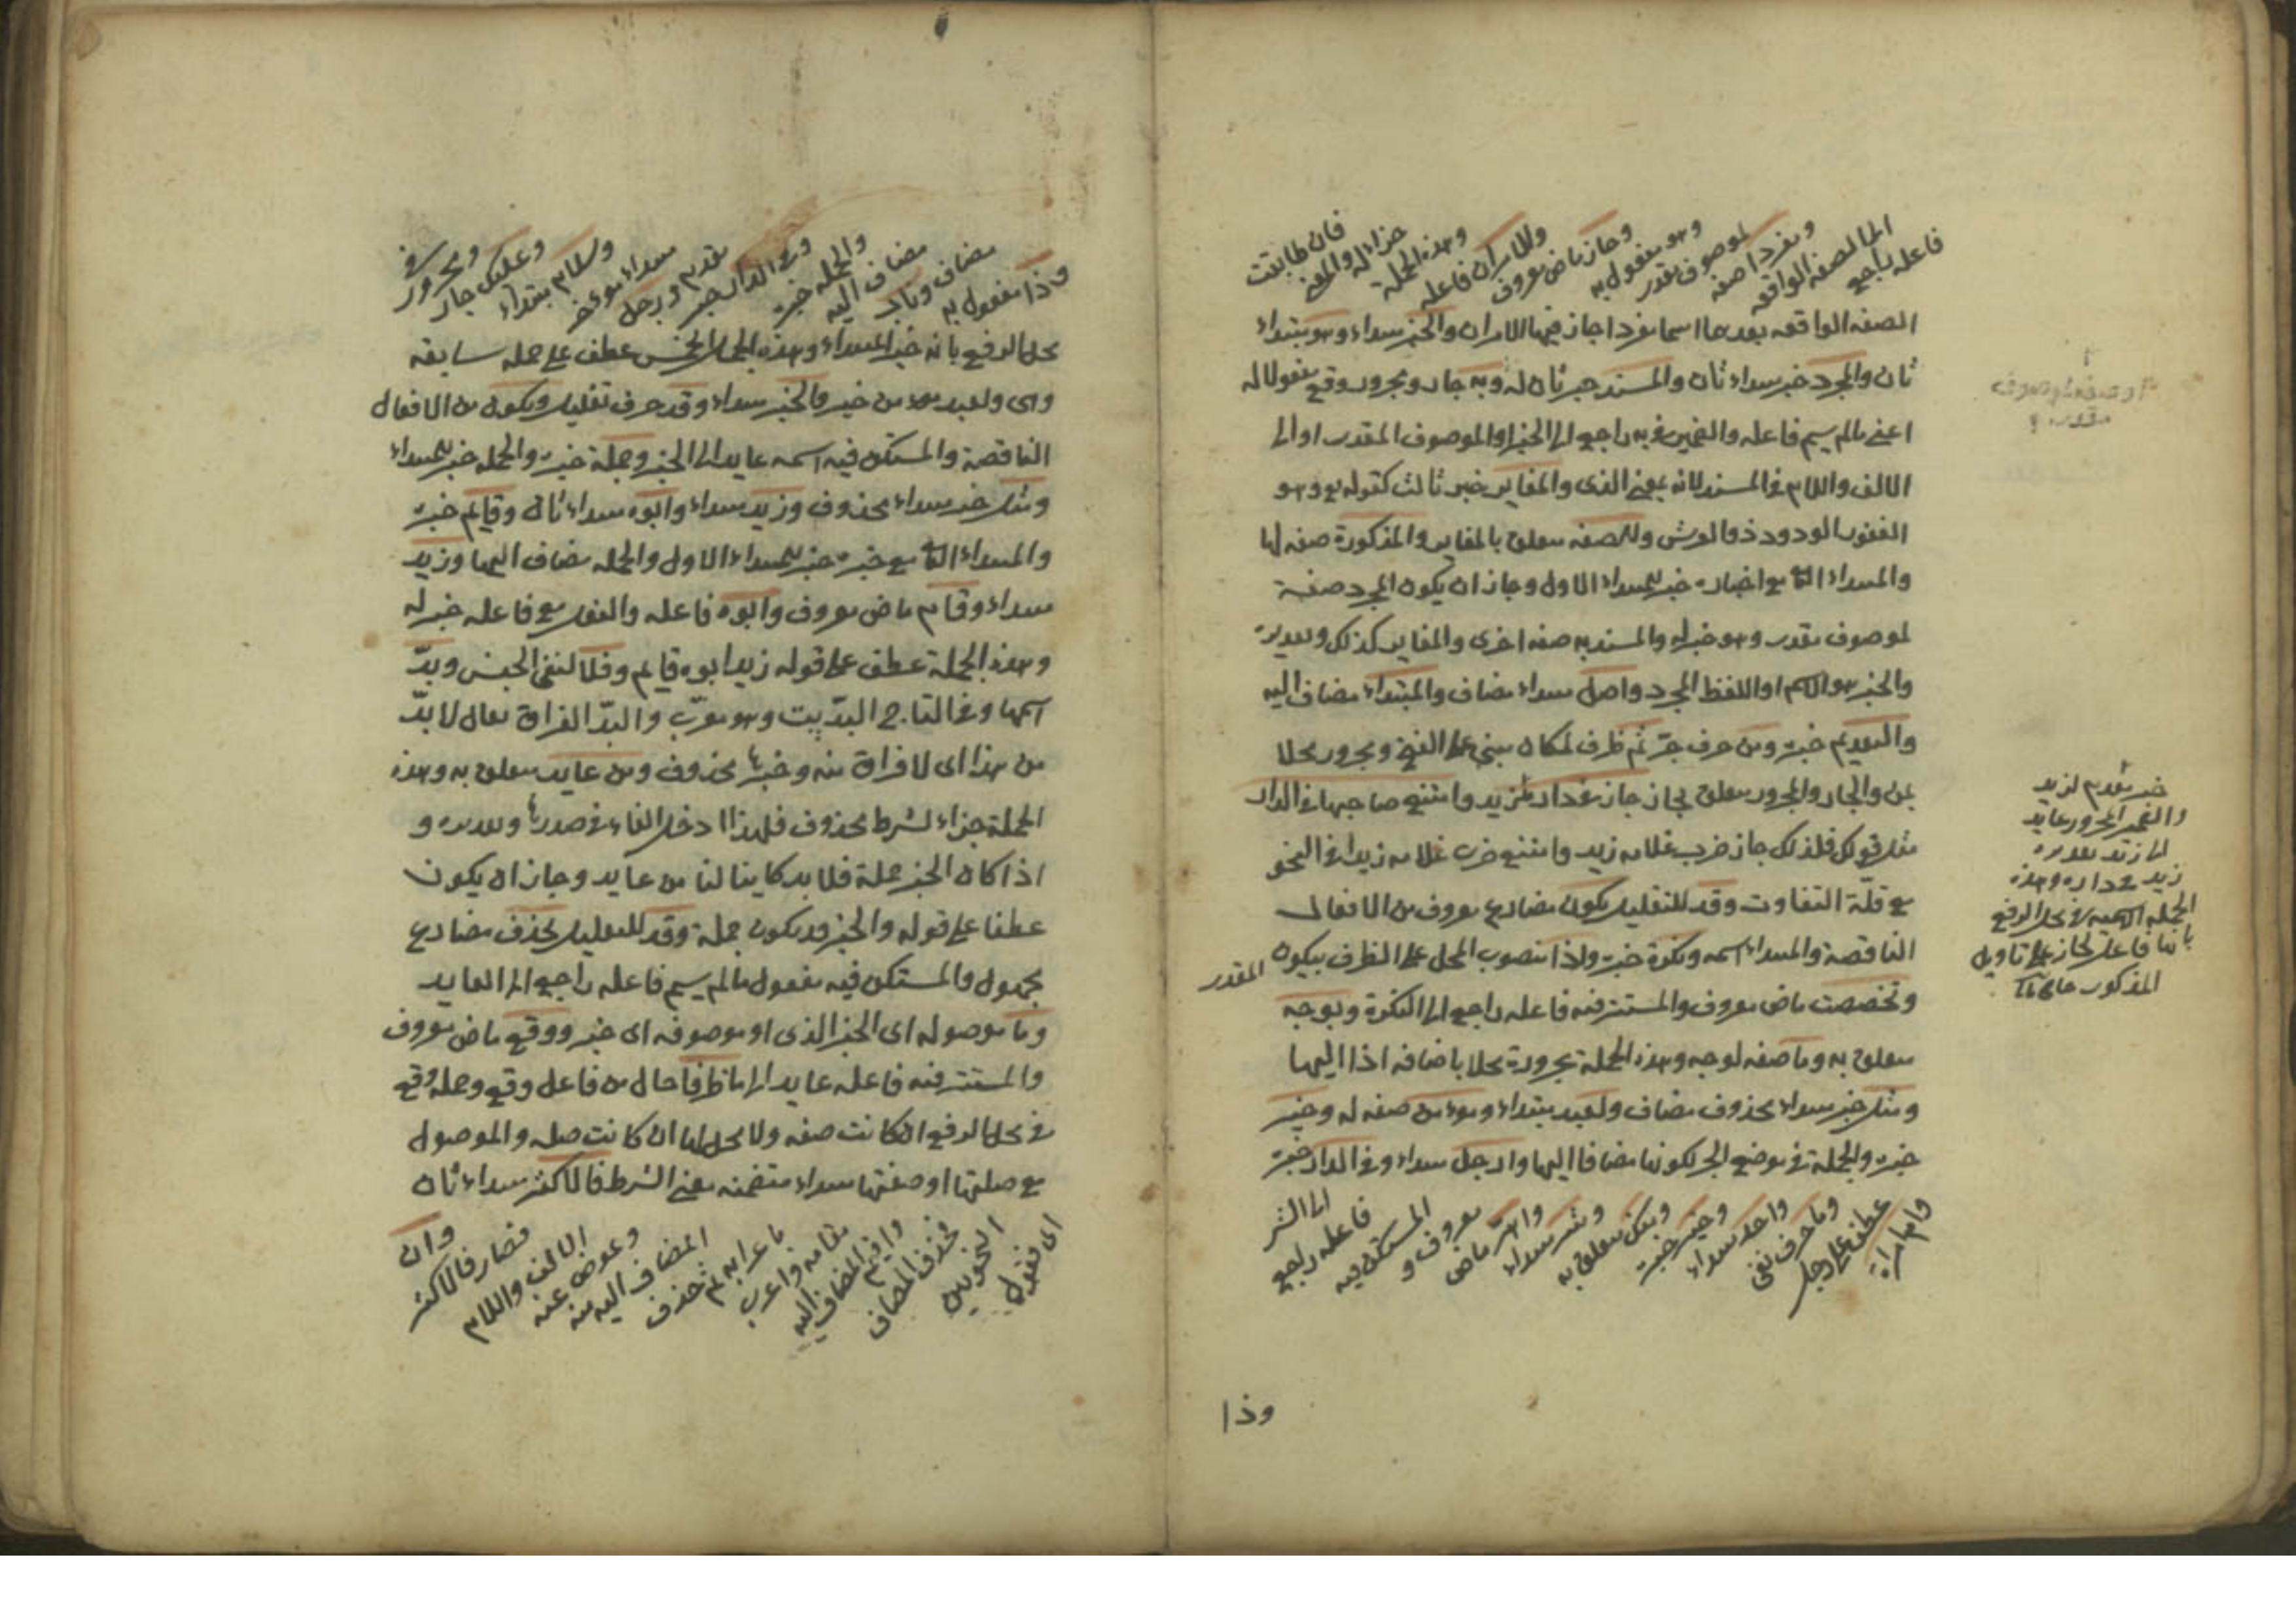 فان طابقت
جزاء له والمعنى
وهذه الجملة
والامران فاعله
وجاز ماض معروف
وهو مفعول به
لموصوف مقدر
ومفردا صفة
الى الصفة الواقعة
فاعله راجع
الصفه الواقعه بعدها اسما مفردا جاز فيها الامران والخبر مبتداء وهو مبتداء
ثان والمجرد خبر مبتداء ثان والمسند خبر ثان له وبه جار ومجرور وقع مفعولا له
اعني مالم يسم فاعله والضمير في به راجع الى الخبر او الموصوف المقدر او الى
الالف واللام في المسند لانه بمعنى الذى والمغاير خبر ثالث كقوله تع وهو
الغفور الودود ذو العرش وللصفه متعلق بالمغاير والمذكورة صفه لها
والمبتداء الثانى مع اخباره خبر للمبتداء الاول وجاز ان يكون المجرد صفة
لموصوف مقدر وهو خبر له والمسند به صفه اخرى والمغاير كذلك وتقديره
والخبر هو الاسم او اللفظ المجرد واصل مبتداء مضاف والمبتداء مضاف اليه
والتقديم خبره ومن حرف جر ثم ظرف لمكان مبني على الفتح ومجرور محلا
بمن والجار والمجرور متعلق بجاز جاز في داره زيد وامتنع صاحبها في الدار
مثل قولك فلذلك جاز ضرب غلامه زيد وامتنع ضرب غلامه زيدا في النحو
مع قلة التفاوت وقد للتقليل يكون مضارع معروف من الافعال
الناقصة والمبتداء اسمه ونكرة خبره واذا منصوب المحل على الظرف بيكون المقدر
وتخصصت ماض معروف والمستتر فيه فاعله راجع الى النكرة وبوجه
متعلق به وما صفه لوجه وهذه الجملة مجرورة محلا باضافه اذا اليها
ومثل خبر مبتداء محذوف مضاف ولعبد مبتداء ومؤمن صفه له وخير
خبره والجملة في موضع الجر لكونها مضافا اليها وارجل مبتداء وفي الدار خبره
وام امراة
عطف على رجل
وما حرف نفي
واحد مبتداء
وخير خبره
ومنك متعلق به
وشر مبتداء
واهر ماض
معروف و
المستكن فيه
فاعله راجع
الى الشر
وذا
خبر مقدم لزيد
والضمير المجرور عايد
الى زيد تقديره
زيد في داره وهذه
الجملة الاسميه في محل الرفع
بانها فاعل لجاز على تاويل
المذكور
او صفه لموصوف
مقدر
وذا مفعول به
مضاف وناب
مضاف اليه
والجمله خبره
وفي الدار خبر
مقدم ورجل
مبتداء مؤخر
وسلام مبتداء
وعليك جار
ومجرور في
محل الرفع بانه خبر المبتداء وهذه الجمل الخمس عطف على جمله سابقه
وهى ولعبد مؤمن خير والخبر مبتداء وقد حرف تقليل ويكون من الافعال
الناقصة والمستكن فيه اسمه عايد الى الخبر وجملة خبره والجمله خبر للمبتداء
ومثل خبر مبتداء محذوف وزيد مبتداء وابوه مبتداء ثان وقايم خبره
والمبتداء الثانى مع خبره خبر للمبتداء الاول والجمله مضاف اليها وزيد
مبتداء وقام ماض معروف وابوه فاعله والفعل مع فاعله خبر له
وهذه الجملة عطف على قوله زيد ابوه قايم وفلا لنفي الجنس وبدّ
اسمها وفي التاج البدّ بيت وهو معرّب والبدّ الفراق يقال لا بدّ
من هذا اى لا فراق منه وخبرها محذوف ومن عايد متعلق به وهذه
الجملة جزاء لشرط محذوف فلهذا ادخل الفاء في صدرها وتقديره و
اذا كان الخبر جملة فلا بد كاينا لنا من عايد وجاز ان يكون
عطفا على قوله والخبر قد يكون جملة وقد للتقليل يحذف مضارع
مجهول والمستكن فيه مفعول مالم يسم فاعله راجع الى العايد
وما موصوله اى الخبر الذى او موصوفه اى خبر ووقع ماض معروف
والمستتر فيه فاعله عايد الى ما ظرفا حال من فاعل وقع وجمله وقع
في محل الرفع ان كانت صفه ولا محل لها ان كانت صله والموصول
مع صلتها او صفتها مبتداء متضمنه معنى الشرط فالاكثر مبتداء ثان
اى نقول
النحويين
فحذف المضاف
واقيم المضاف اليه
مقامه واعرب
باعرابه ثم حذف
المضاف اليه منه
وعوض عنه
الالف واللام
فصار فالاكثر
وان